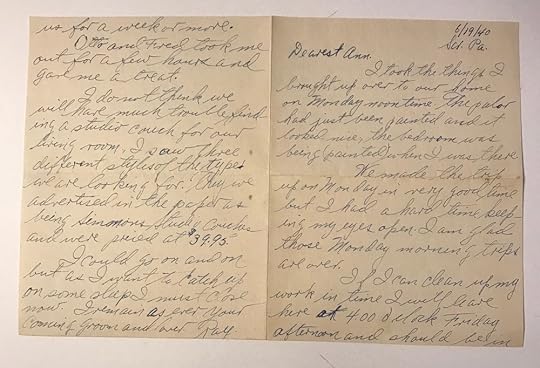 6/19/40
Scr. Pa.
Dearest Ann.
I took the things I
brought up over to our home
on Monday noontime, the parlor
had just been painted and it
looked nice, the bedroom was
being painted when I was there
We made the trip
up on Monday in very good time
but I had a hard time keep
ing my eyes open. I am glad
those Monday morning trips
are over.
If I can clean up my
work in time I will leave
here at 4:00 o'clock Friday
afternoon and should be in
us for a week or more.
Otto and Fred took me
out for a few hours and
gave me a treat.
I do not think we
will have much trouble find
ing a studio couch for our
living room. I saw three
different styles of the type
we are looking for. They were
advertised in the paper as
being Simmons Studio Couches
and were priced at $39.95.
I could go on and on
but as I want to catch up
on some sleep I must close
now. I remain as ever your
Coming Groom and lover